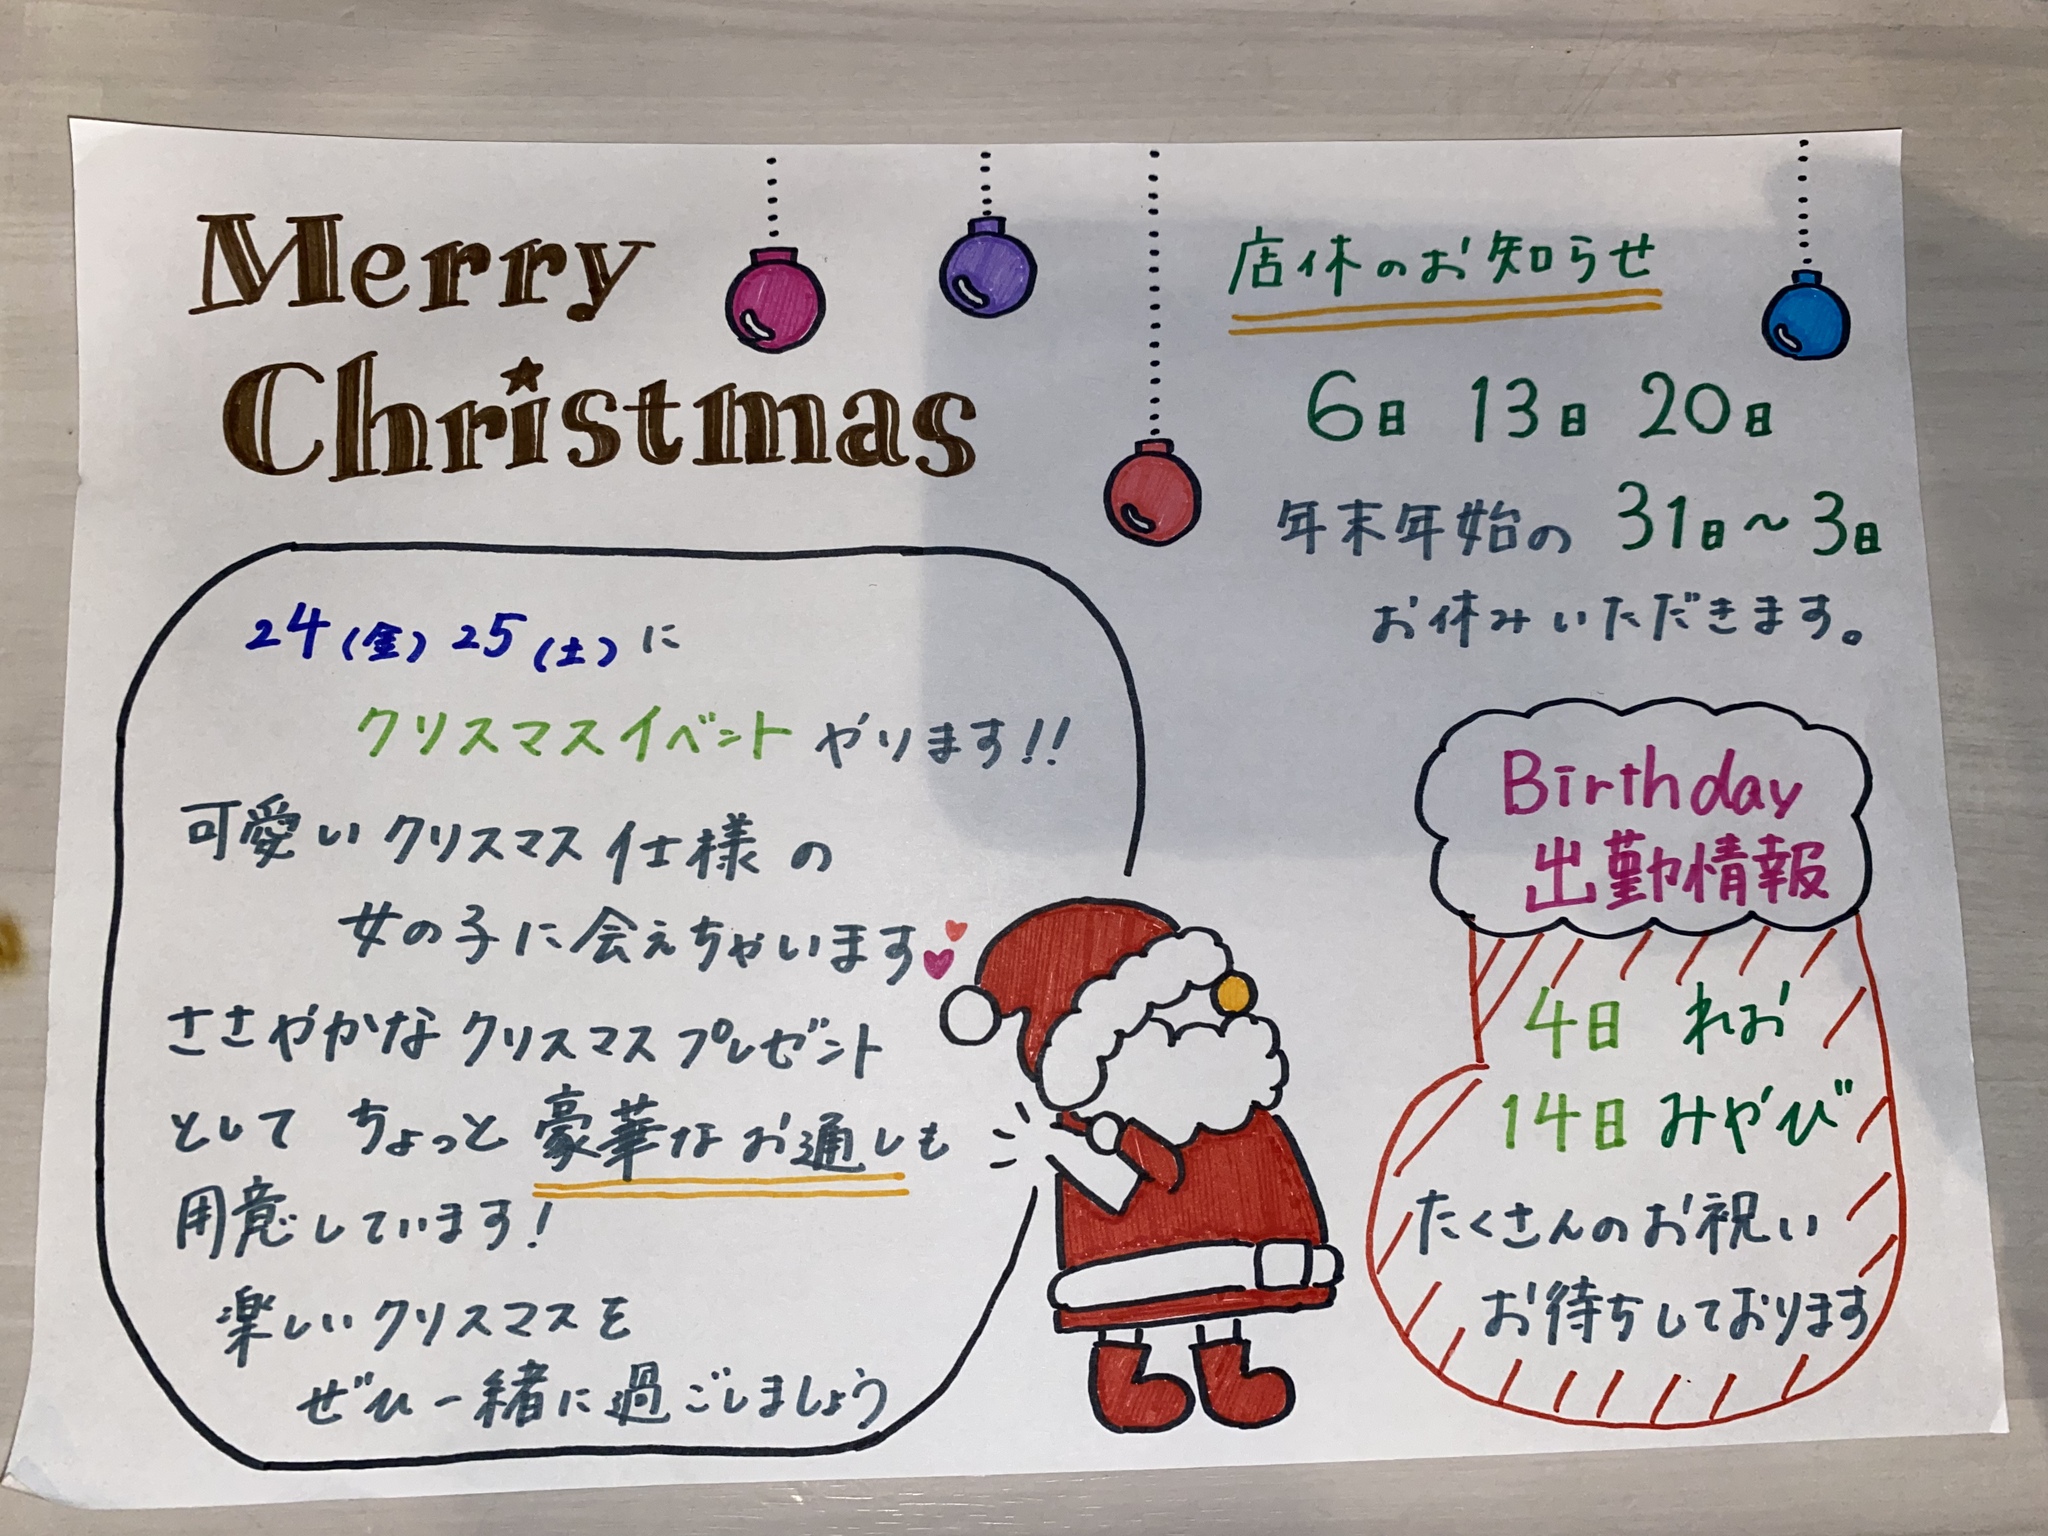 Merry
Christmas
店休のお知らせ
6日 13日 20日
年末年始の 31日～3日
お休みいただきます。
24(金) 25(土)に
クリスマスイベントやります!!
可愛いクリスマス仕様の
女の子に会えちゃいます
ささやかなクリスマスプレゼント
として ちょっと豪華なお通しも
用意しています!
楽しいクリスマスを
ぜひ一緒に過ごしましょう
Birthday
出勤情報
4日 れお
14日 みやび
たくさんのお祝い
お待ちしております